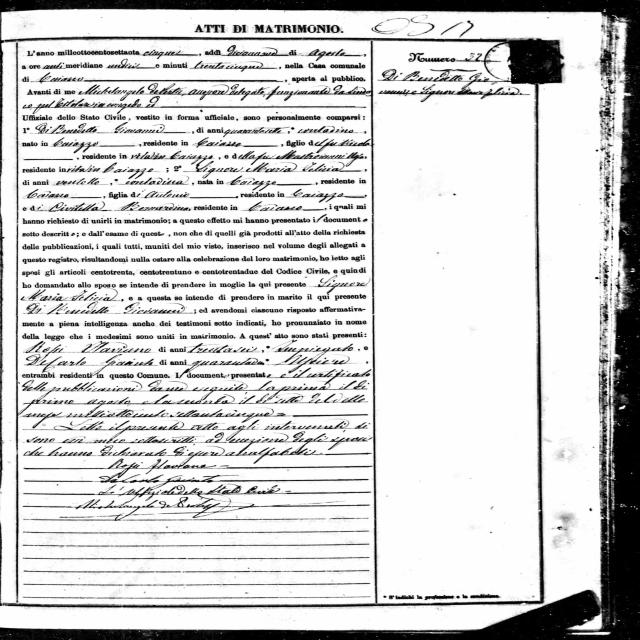 ATTI DI MATRIMONIO.
L'anno millottocentosettanta cinque, addì di agosto,
a ore anti meridiane undici e minuti trentacinque, nella Casa comunale
di Caiazzo, aperta al pubblico.
Avanti di me Michelangelo
Uffiziale dello Stato Civile, vestito in forma uffiziale, sono personalmente comparsi:
1° Di Benedetto Giovanni, di anni quarantasette, contadino,
nato in Caiazzo, residente in Caiazzo, figlio del fu Nicola
, residente in vita in Caiazzo, e della fu
residente in vita in Caiazzo; 2° Signore Maria Felicia
di anni ventotto, contadina, nata in Caiazzo, residente in
Caiazzo, figlia di Antonio residente in Caiazzo
e di Civitella residente in Caiazzo, i quali mi
hanno richiesto di unirli in matrimonio; a questo effetto mi hanno presentato il document o
sotto descritto; e dall'esame di questo, non che di quelli già prodotti all'atto della richiesta
delle pubblicazioni, i quali tutti, muniti del mio visto, inserisco nel volume degli allegati a
questo registro, risultandomi nulla ostare alla celebrazione del loro matrimonio, ho letto agli
sposi gli articoli centotrenta, centotrentuno e centotrentadue del Codice Civile, e quindi
ho domandato allo sposo se intende di prendere in moglie la qui presente Signore
Maria Felicia, e a questa se intende di prendere in marito il qui presente
Di Benedetto Giovanni; ed avendomi ciascuno risposto affermativamente
a piena intelligenza anche dei testimoni sotto indicati, ho pronunziato in nome
della legge che i medesimi sono uniti in matrimonio. A quest'atto sono stati presenti:
Rossi Flaviano di anni trentasei, Impiegato, e
De Carlo Giacinto di anni quaranta Usciere,
entrambi residenti in questo Comune. I document presentat o è il certificato
delle pubblicazioni da me eseguite la prima il dì
primo agosto e la seconda il dì otto del detto
mese millottocentosettantacinque =
Letto il presente atto agli intervenuti, si
sono essi meco sottoscritti, ad eccezione degli sposi
che hanno dichiarato di essere analfabeti.
Rossi Flaviano
De Carlo Giacinto
L'Uffiziale dello Stato Civile
Michelangelo
Numero 32
Di Benedetto Gio
vanni e Signore Maria Felicia.
* S'indichi la professione o la condizione.